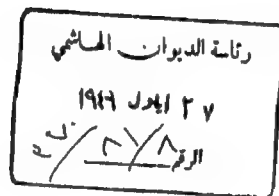 رئاسة الديوان الهاشمي
٢٧ ايلول ١٩٤٩
الرقم ٨/٢١